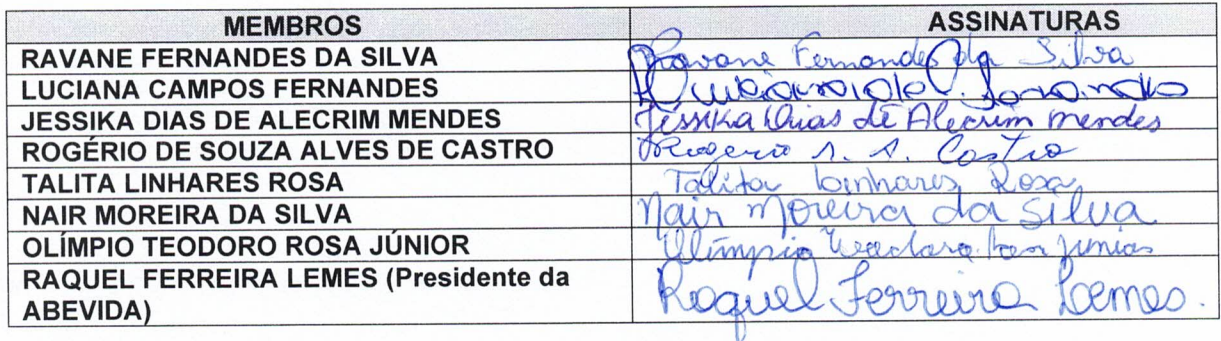 MEMBROS ASSINATURAS
RAVANE FERNANDES DA SILVA Ravane Fernandes da Silva
LUCIANA CAMPOS FERNANDES
JESSIKA DIAS DE ALECRIM MENDES Jéssika Dias de Alecrim Mendes
ROGÉRIO DE SOUZA ALVES DE CASTRO Rogerio S. A. Castro
TALITA LINHARES ROSA Talita Linhares Rosa
NAIR MOREIRA DA SILVA Nair Moreira da Silva
OLÍMPIO TEODORO ROSA JÚNIOR Olímpio Teodoro Rosa Junior
RAQUEL FERREIRA LEMES (Presidente da
ABEVIDA) Raquel Ferreira Lemes.